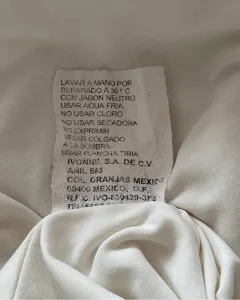 LAVAR A MANO POR
SEPARADO A 30° C
CON JABON NEUTRO
USAR AGUA FRIA
NO USAR CLORO
NO USAR SECADORA
NO EXPRIMIR
SECAR COLGADO
A LA SOMBRA
USAR PLANCHA TIBIA
IVONNE, S.A. DE C.V.
ANIL 563
COL. GRANJAS MEXICO
08400 MEXICO, D.F.
R.F.C.